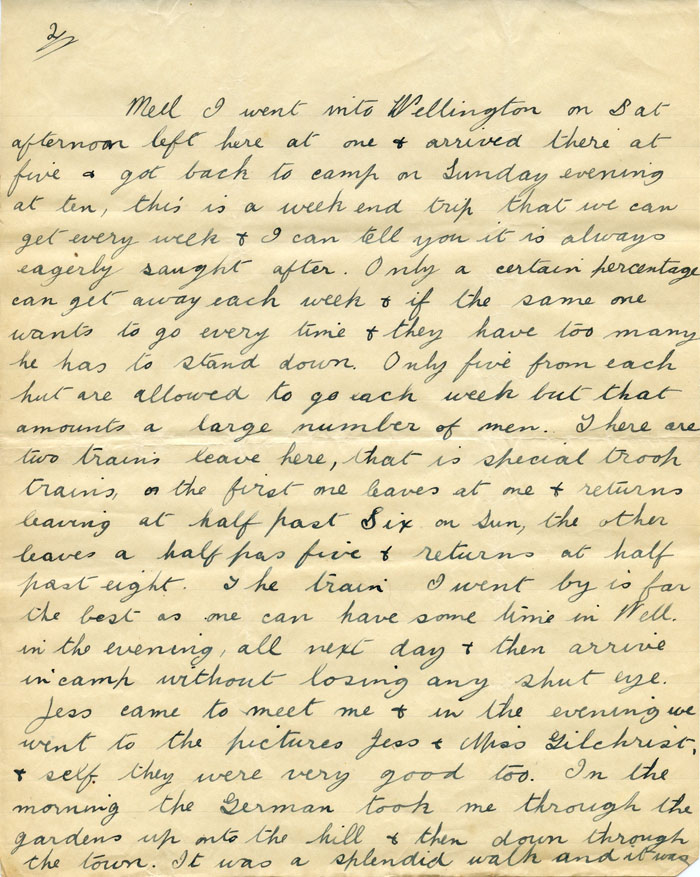 2/
Well I went into Wellington on Sat
afternoon left here at one & arrived there at
five & got back to camp on Sunday evening
at ten, this is a week end trip that we can
get every week & I can tell you it is always
eagerly saught after. Only a certain percentage
can get away each week & if the same one
wants to go every time & they have too many
he has to stand down. Only five from each
hut are allowed to go each week but that
amounts a large number of men. There are
two trains leave here, that is special troop
trains, the first one leaves at one & returns
leaving at half past Six on Sun, the other
leaves a half pas five & returns at half
past eight. The train I went by is far
the best as one can have some time in Well.
in the evening, all next day & then arrive
in camp without losing any shut eye.
Jess came to meet me & in the evening we
went to the pictures Jess & Miss Gilchrist,
& self. they were very good too. In the
morning the German took me through the
gardens up onto the hill & then down through
the town. It was a splendid walk and it was